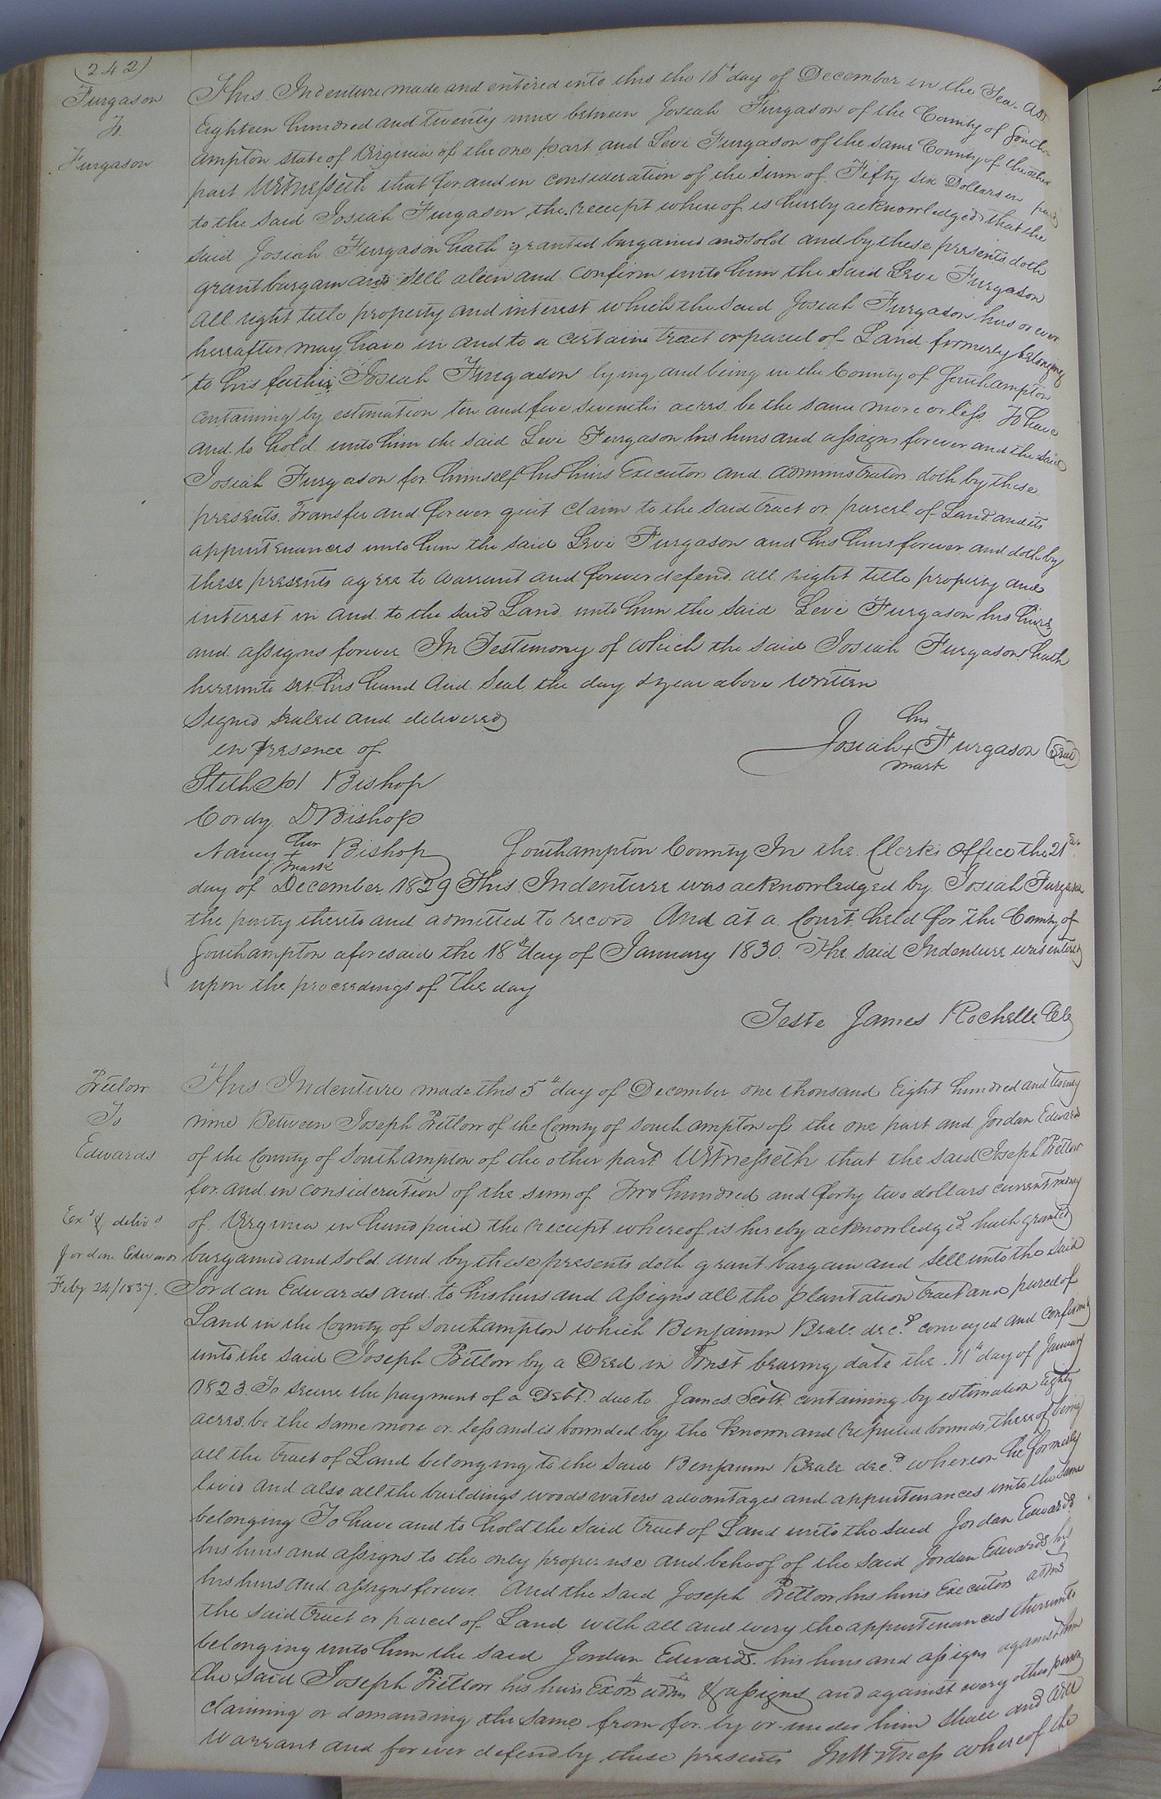 (242)
Furgason
To
Furgason
This Indenture made and entered into this the 16th day of December in the Year AD
Eighteen hundred and twenty nine between Josiah Furgason of the County of South-
ampton state of Virginia of the one part and Levi Furgason of the same County of the other
part Witnesseth that for and in consideration of the sum of Fifty six Dollars in paid
to the said Josiah Furgason the receipt where of is hereby acknowledged that the
said Josiah Furgason hath granted bargained and sold and by these presents doth
grant bargain and sell alien and confirm unto him the said Levi Furgason
all right title property and interest which the said Josiah Furgason has or ever
hereafter may have in and to a certain tract or parcel of Land formerly belonging
to his father Josiah Furgason lying and being in the County of Southampton
containing by estimation ten and five sevenths acres be the same more or less To have
and to hold unto him the said Levi Furgason his heirs and assigns forever and the said
Josiah Furgason for himself his heirs Executors and Administrators doth by these
presents Transfer and forever quit claim to the said tract or parcel of Land and its
appurtenances unto him the said Levi Furgason and his heirs forever and doth by
these presents agree to warrant and forever defend all right title property and
interest in and to the said Land unto him the said Levi Furgason his heirs
and assigns forever In Testimony of which the said Josiah Furgason hath
hereunto set his hand and seal the day & year above written
Signed sealed and delivered
in presence of
his
Josiah + Furgason (Seal)
mark
Bishop
Cordy D Bishop
Nancy her + mark Bishop
Southampton County In the Clerks Office the 21st
day of December 1829 This Indenture was acknowledged by Josiah Furgason
the party thereto and admitted to record And at a Court held for the County of
Southampton aforesaid the 18th day of January 1830 The said Indenture was entered
upon the proceedings of the day
Teste James Rochelle Clk
Pretlow
To
Edwards
Exd & delivd
Jordan Edwards
Feby 24/1837.
This Indenture made this 5th day of December one thousand Eight hundred and twenty
nine Between Joseph Pretlow of the County of Southampton of the one part and Jordan Edwards
of the County of Southampton of the other part Witnesseth that the said Joseph Pretlow
for and in consideration of the sum of Two hundred and forty two dollars current money
of Virginia in hand paid the receipt whereof is hereby acknowledged hath granted
bargained and sold and by these presents doth grant bargain and sell unto the said
Jordan Edwards and to his heirs and assigns all the plantation tract and parcel of
Land in the County of Southampton which Benjamin Beale decd. conveyed and confirmed
unto the said Joseph Pretlow by a Deed in Trust bearing date the 11th day of January
1823 To secure the payment of a Debt due to James Scott containing by estimation Eighty
acres be the same more or less and is bounded by the known and reputed bounds thereof being
all the tract of Land belonging to the said Benjamin Beale decd. whereon he formerly
lived and also all the buildings woods waters advantages and appurtenances unto the same
belonging To have and to hold the said tract of Land unto the said Jordan Edwards
his heirs and assigns to the only proper use and behoof of the said Jordan Edwards his
his heirs and assigns forever And the said Joseph Pretlow his heirs Executors adms
the said tract or parcel of Land with all and every the appurtenances thereunto
belonging unto him the said Jordan Edwards his heirs and assigns against him
the said Joseph Pretlow his heirs Exors adms & assigns and against every other person
claiming or demanding the same from for by or under him shall and will
warrant and forever defend by these presents In Witness whereof the